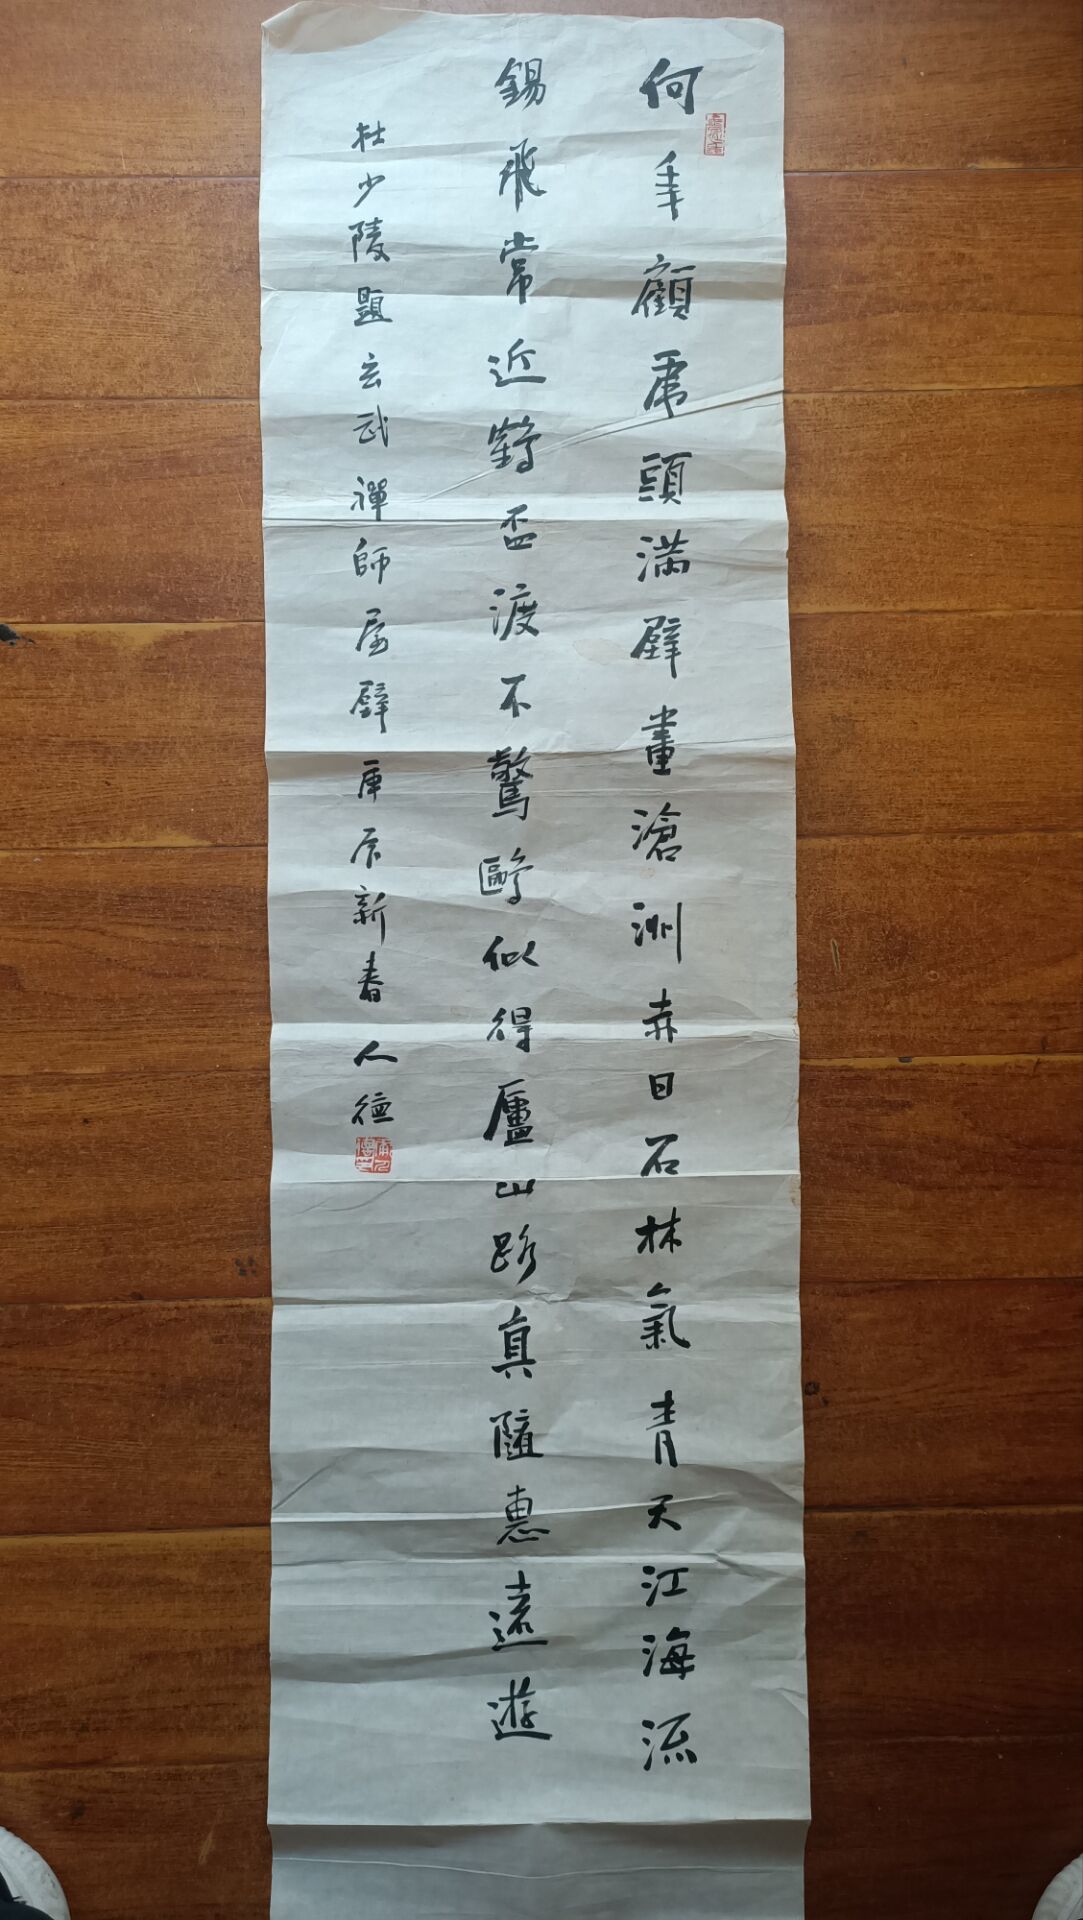 何年顧虎頭滿壁畫滄洲赤日石林氣青天江海流
錫飛常近鶴盃渡不驚鷗似得廬山路真隨惠遠遊
杜少陵題玄武禪師屋壁庚辰新春人德